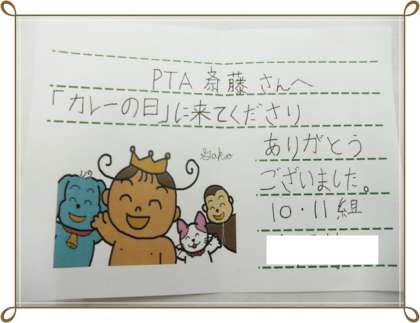 PTA 斎藤 さんへ
「カレーの日」に来てくださり
ありがとう
ございました。
10・11組